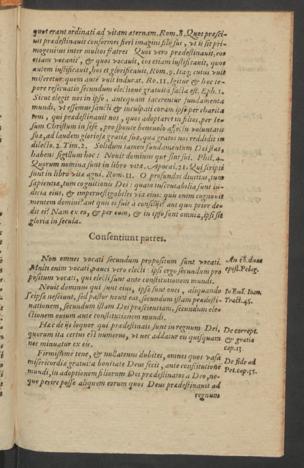 quot erant ordinati ad vitam æternam. Rom. 8. Quos præsci-
uit prædestinauit conformes fieri imagini filij sui, vt is sit pri-
mogenitus inter multos fratres. Quos vero prædestinauit, eos
etiam vocauit, & quos vocauit, eos etiam iustificauit, quos
autem iustificauit, hos et glorificauit. Rom. 9. Itaq; cuius vult
miseretur: quem autē vult indurat. Ro. 11. Igitur & hoc tē-
pore reseruatio secundum electionē gratuitā facta est. Eph. 1.
Sicut elegit nos in ipso, antequam iacerentur fundamenta
mundi, vt essemus sancti & inculpati coram ipso per charita-
tem, qui prædestinauit nos, quos adoptaret in filios, per Ie-
sum Christum in sese, pro suo beneuolo affectu voluntatis
suæ, ad laudem gloriosæ gratiæ suæ, qua gratos nos reddidit in
dilecto. 2. Tim. 2. Solidum tamen fundamentum Dei stat,
habens sigillum hoc: Nouit dominus qui sint sui. Phil. 4.
Quorum nomina sunt in libro vitæ. Apocal. 21. Qui scripti
sunt in libro vitæ agni. Rom. 11. O profundas diuitias, tum
sapientiæ, tum cognitionis Dei: quam inscrutabilia sunt iu-
dicia eius, & imperuestigabiles viæ eius: quis enim cognouit
mentem domini? aut quis ei fuit a consilijs? aut quis prior de-
dit ei? Nam ex eo, & per eum, & in ipso sunt omnia, ipsi sit
gloria in secula.
Consentiunt patres.
Non omnes vocati secundum propositum sunt vocati.
Multi enim vocati, pauci vero electi: ipsi ergo secundum pro
positum vocati, qui electi sunt ante constitutionem mundi.
An ēt. duas
epist. Pelag.
Nouit dominus qui sunt eius, ipsi sunt oues, aliquando
se ipsæ nesciunt, sed pastor nouit eas, secundum istam prædesti-
nationem, secundum istam Dei præscientiam, secundum ele-
ctionem eorum ante constitutionem mundi.
In Euā. Ioan.
Tract. 45.
Hæc de ijs loquor, qui prædestinati sunt in regnum Dei,
quorum ita certus est numerus, vt nec addatur eis quisquam
nec minuatur ex eis.
De corrept.
& gratia
cap. 13.
Firmissime tene, & nullatenus dubites, omnes quos vasa
misericordiæ gratuita bonitate Deus fecit, ante constitutionē
mundi, in adoptionem filiorum Dei prædestinatos a Deo, ne-
que perire posse aliquem eorum quos Deus prædestinauit ad
De fide ad
Pet. cap. 35.
regnum